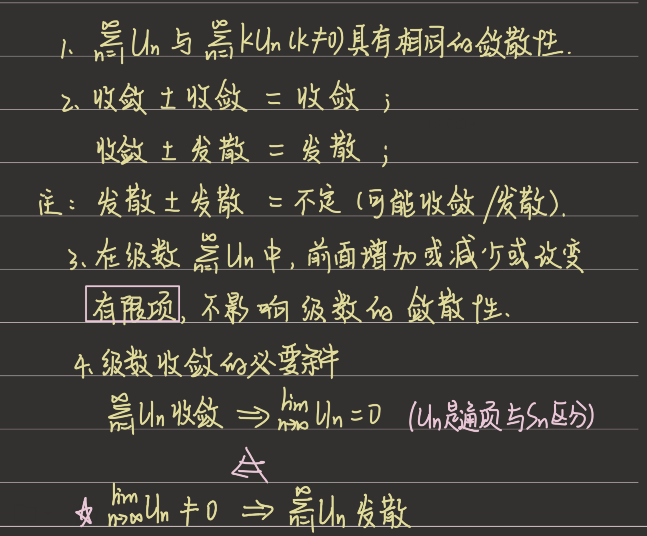 1、∑_{n=1}^{∞} Un 与 ∑_{n=1}^{∞} kUn (k≠0) 具有相同的敛散性.
2、收敛 ± 收敛 = 收敛 ;
收敛 ± 发散 = 发散 ;
注: 发散 ± 发散 = 不定 (可能收敛/发散).
3、在级数 ∑_{n=1}^{∞} Un 中, 前面增加或减少或改变
有限项, 不影响级数的敛散性.
4、级数收敛的必要条件
∑_{n=1}^{∞} Un 收敛 ⇒ lim_{n→∞} Un = 0 (Un是通项与Sn区分)
☆ lim_{n→∞} Un ≠ 0 ⇒ ∑_{n=1}^{∞} Un 发散